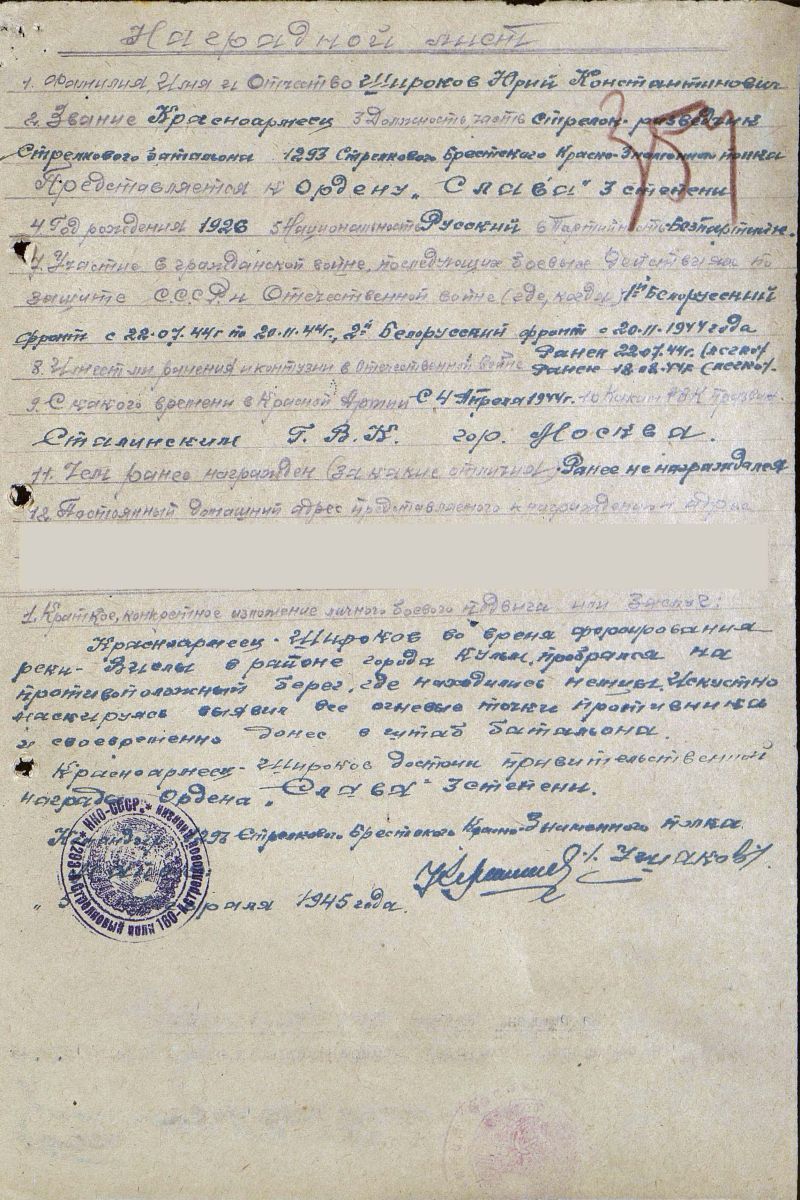 Наградной лист
1. Фамилия, Имя и Отчество Широков Юрий Константинович
2. Звание Красноармеец 3 Должность, часть Стрелок-разведчик
Стрелкового батальона 1293 Стрелкового Брестского Красно-Знаменного полка
Представляется к Ордену „Слава" 3 степени
4. Год рождения 1926 5 Национальность Русский 6 Партийность Безпартийн.
7. Участие в гражданской войне, последующих боевых действиях по
защите СССР и Отечественной войне (где, когда) 1й Белорусский
фронт с 22.07.44г по 20.11.44г., 2й Белорусский фронт с 20.11.1944 года
8. Имеет ли ранения и контузии в Отечественной войне Ранен 22.07.44г. (легко)
Ранен 18.08.44г (легко).
9. С какого времени в Красной Армии С 4 Апреля 1944г. 10 Каким РВК призван
Сталинским Г.В.К. гор. Москва.
11. Чем ранее награжден (за какие отличия) Ранее не награждался
12. Постоянный домашний адрес представляемого к награждению и адрес
1. Краткое, конкретное изложение личного боевого подвига или заслуг:
Красноармеец-Широков во время форсирования
реки-Вислы в районе города Кульм, пробрался на
противоположный берег, где находились немцы. Искустно
маскируясь выявил все огневые точки противника
и своевременно донес в штаб батальона.
Красноармеец-Широков достоин правительственной
награды Ордена „Слава" 3 степени.
Командир 1293 Стрелкового Брестского Красно-Знаменного полка
/. Ушаков/.
раля 1945 года.
НКО-СССР. * 1293 Стрелковый полк 160-й стрелковой
351